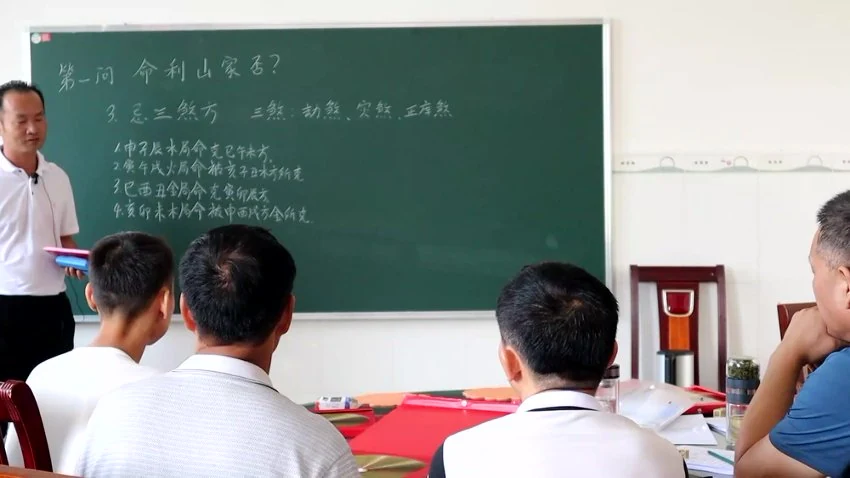 第一问 命利山家否?
3. 忌三煞方 三煞:劫煞、灾煞、正库煞
1.申子辰水局命克巳午未方,
2.寅午戌火局命被亥子丑水方所克
3.巳酉丑金局命克寅卯辰方
4.亥卯未木局命被申酉戌方金所克.